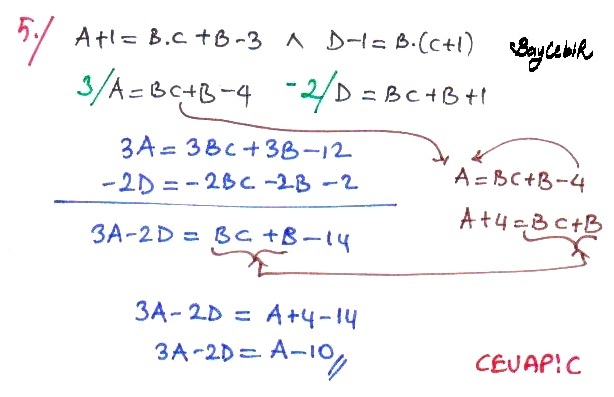 5./ A+1 = B.C + B-3 ∧ D-1 = B.(C+1) BayCebiR
3/ A = BC+B-4 -2/ D = BC+B+1
3A = 3BC+3B-12
-2D = -2BC -2B -2
A = BC+B-4
A+4 = BC+B
3A-2D = BC +B-14
3A-2D = A+4-14
3A-2D = A-10//
CEVAP!C